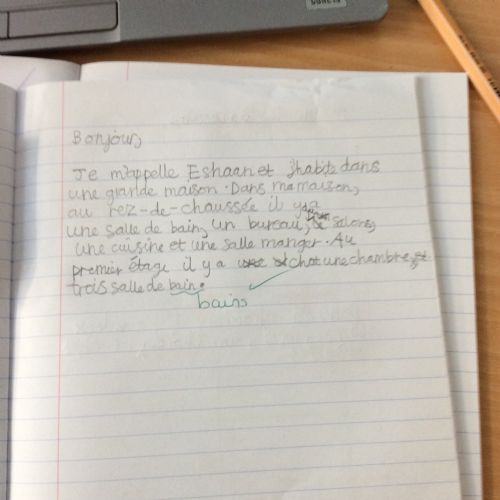 Bonjour,
Je m'appelle Eshaan et j'habite dans
une grande maison. Dans ma maison,
au rez-de-chaussée il y a
une salle de bain, un bureau, salons,
une cuisine et une salle manger. Au
premier étage il y a une chambre, et
trois salle de bain.
bains